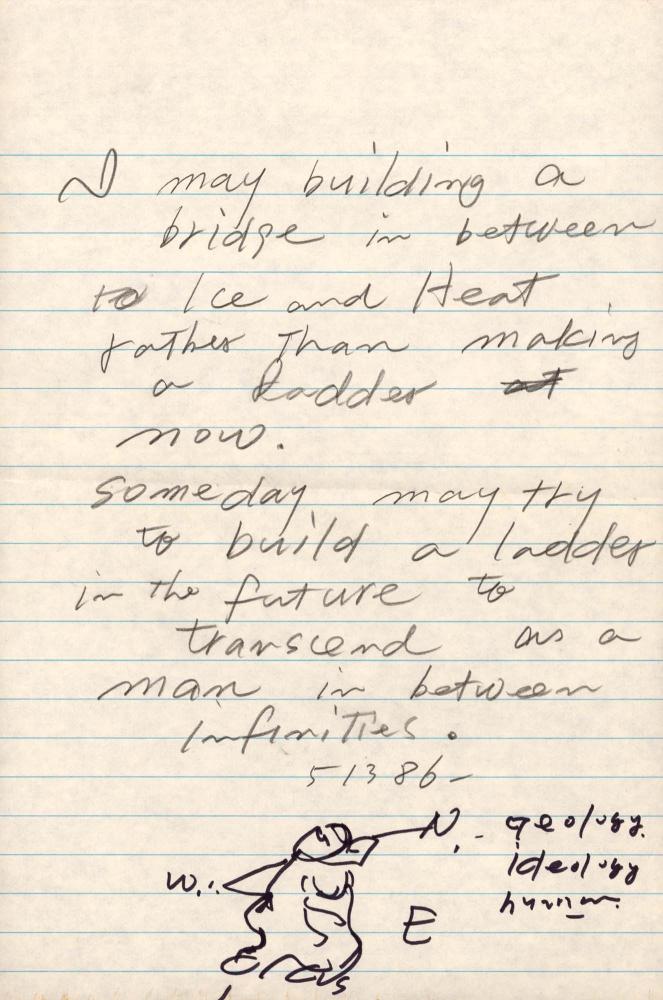 I may building a
bridge in between
to Ice and Heat
rather than making
a ladder at
now.
someday may try
to build a ladder
in the future to
transcend as a
man in between
infinities.
51386-
N. - geology.
ideology
W.
human.
E
S